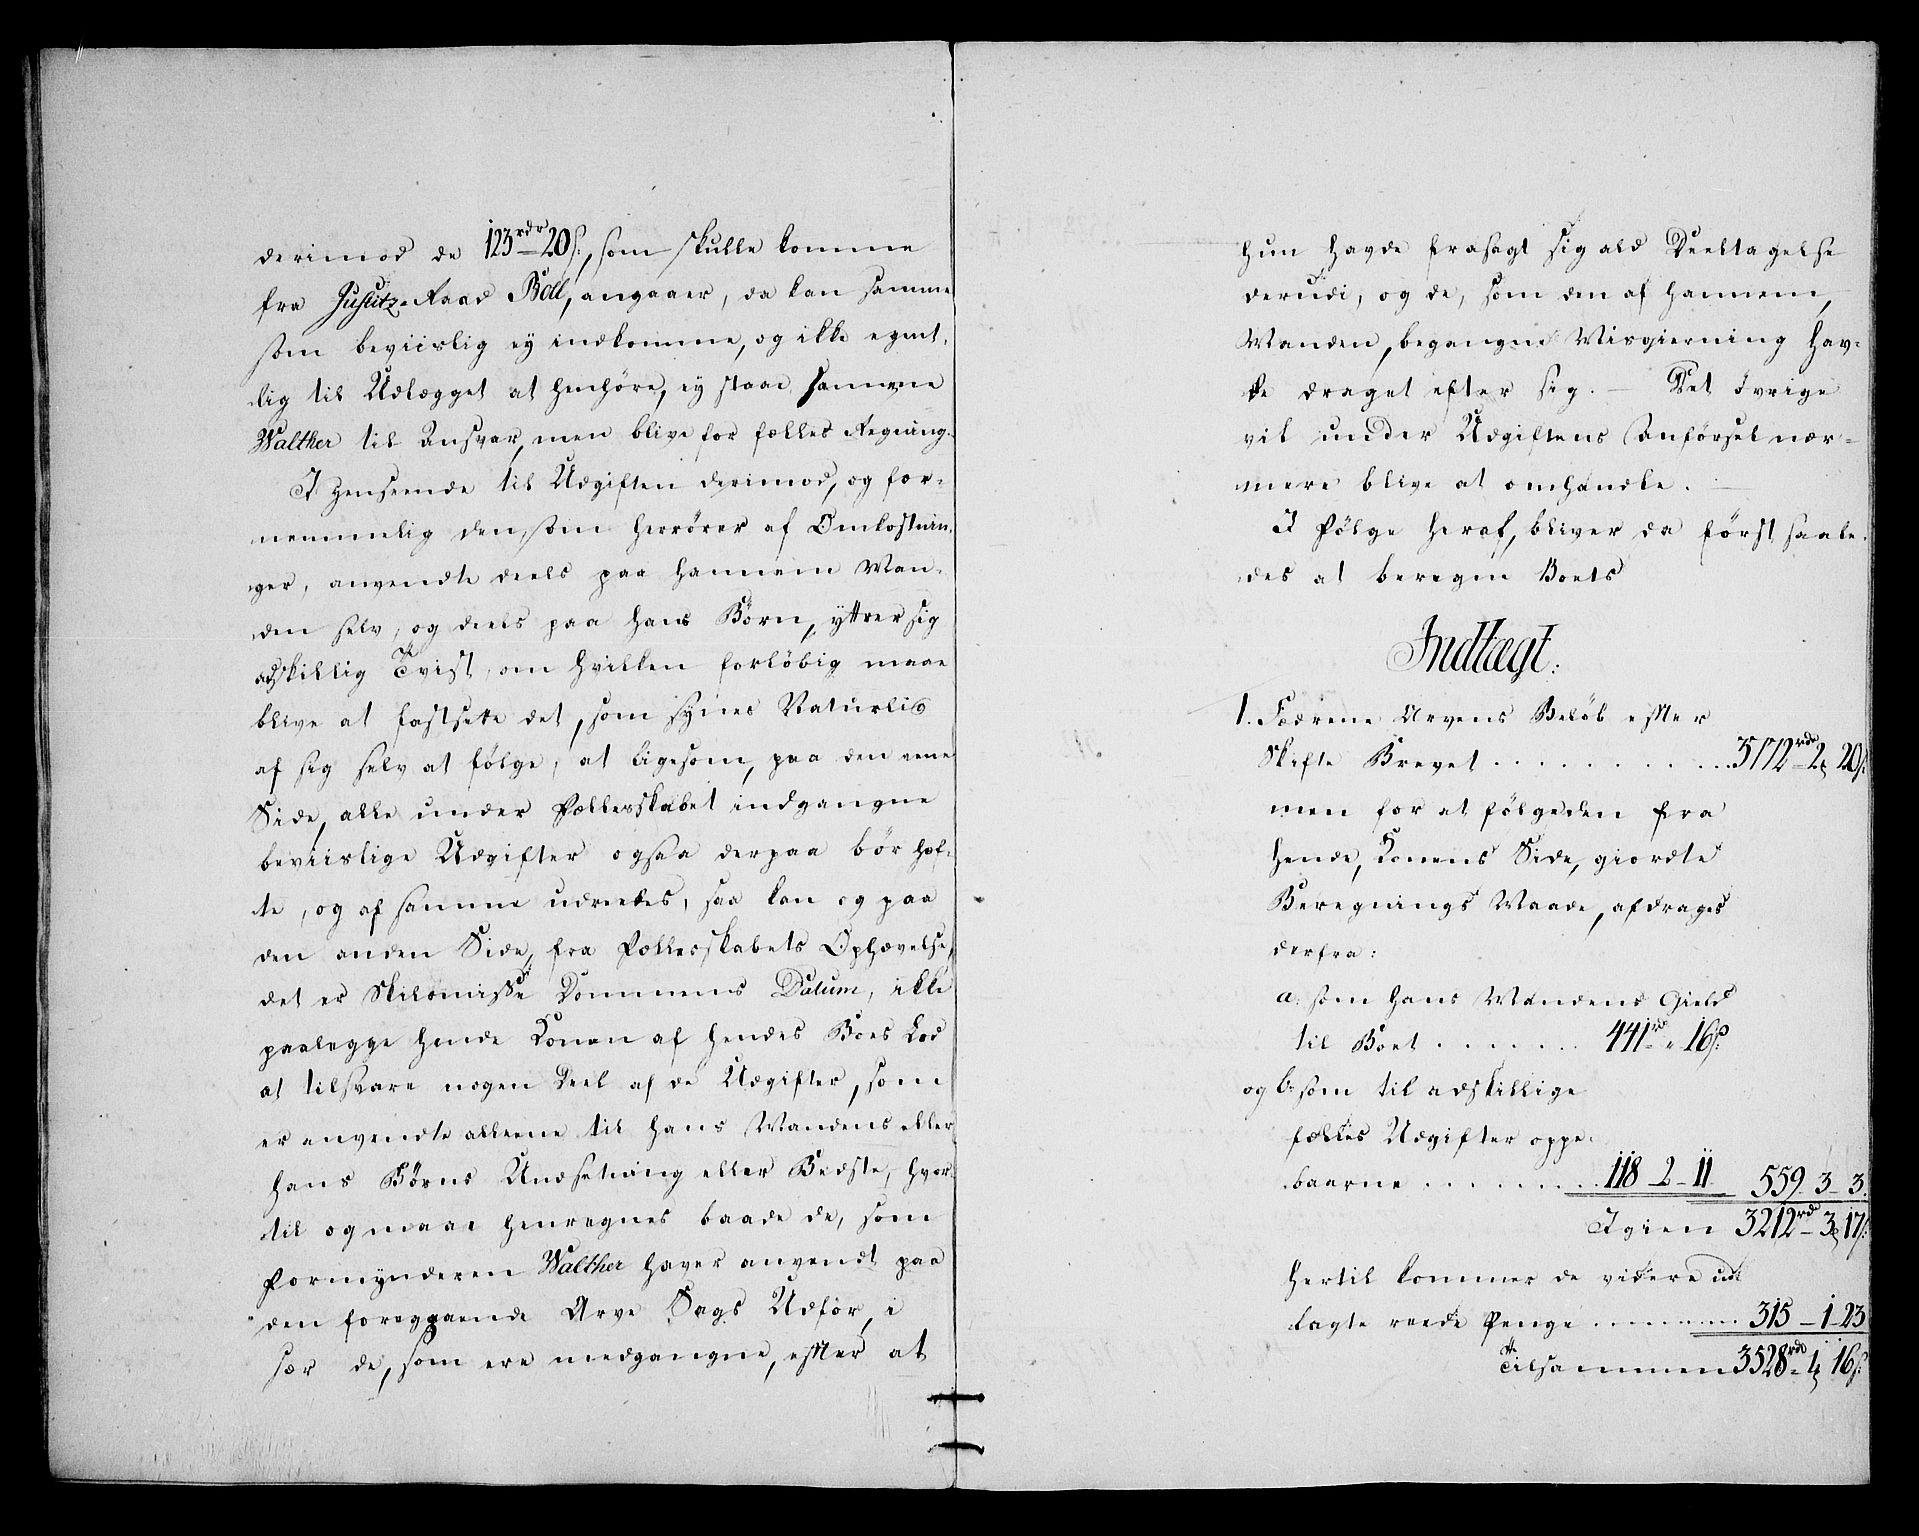 derimod de 123 rdr 20 s., som skulle komme
fra Justitz-Raad Boll, angaaer, da kan samme
som beviislig ey indkomme, og ikke egent-
lig til Udlægget at henhöre, ey staae hannem
Walther til Ansvar, men blive for fælles Regning.
I Henseende til Udgiften derimod, og for-
nemmelig den, som herrörer af Omkostnin-
ger, anvendte deels paa hannem Man-
den selv, og deels paa hans Börn, yttrer sig
adskillig Tvist, om hvilken forlöbig maae
blive at fastsette det, som synes Naturlig
af sig selv at fölge, at ligesom, paa den eene
Side, alle under Fælleskabet indgangne
beviislige Udgifter ogsaa derpaa bör hæf-
te, og af samme udredes, saa kan og paa
den anden Side, fra Fælleskabets Ophævelse,
det er Skilsmisse Dommens Datum, ikke
paalegge hende Konen af hendes Boes Lod
at tilsvare nogen Deel af de Udgifter, som
er anvendte alleene til hans Mandens eller
hans Börns Undsetning eller Bedste, hvor-
til og maae henregnes baade de, som
Formynderen Walther haver anvendt paa
den foregaaende Arve Sags Udför, i
sær de, som ere medgangne, efter at
hun havde frasagt sig ald Deeltagelse
derudi, og de, som den af hannem,
Manden, begangne Misgierning hav-
de draget efter sig. — Det övrige
vil under Udgiftens Anförsel nær-
mere blive at omhandle. —
I Fölge heraf, bliver da först saale-
des at beregne Boets
Indtægt:
1. Fædrene Arvens Belöb efter
Skifte Brevet . . . . . . . . . . . 3772 rdr 2 ₰ 20 s.
men for at fölge den fra
hende, Konens Side, giordte
Beregnings Maade, afdrages
derfra:
a. som hans Mandens Gield
til Boet . . . . . . . 441 rd " 16 s.
og b. som til adskillige
fælles Udgifter oppe-
baarne . . . . . . . . . 118 - 2 - 11 559 - 3 - 3.
Igien 3212 rdr 3 ₰ 17 s.
hertil kommer de videre ud
lagte reede Penge . . . . . . . . . 315 - 1 - 23
Tilsammen 3528 rdr 1 ₰ 16 s.